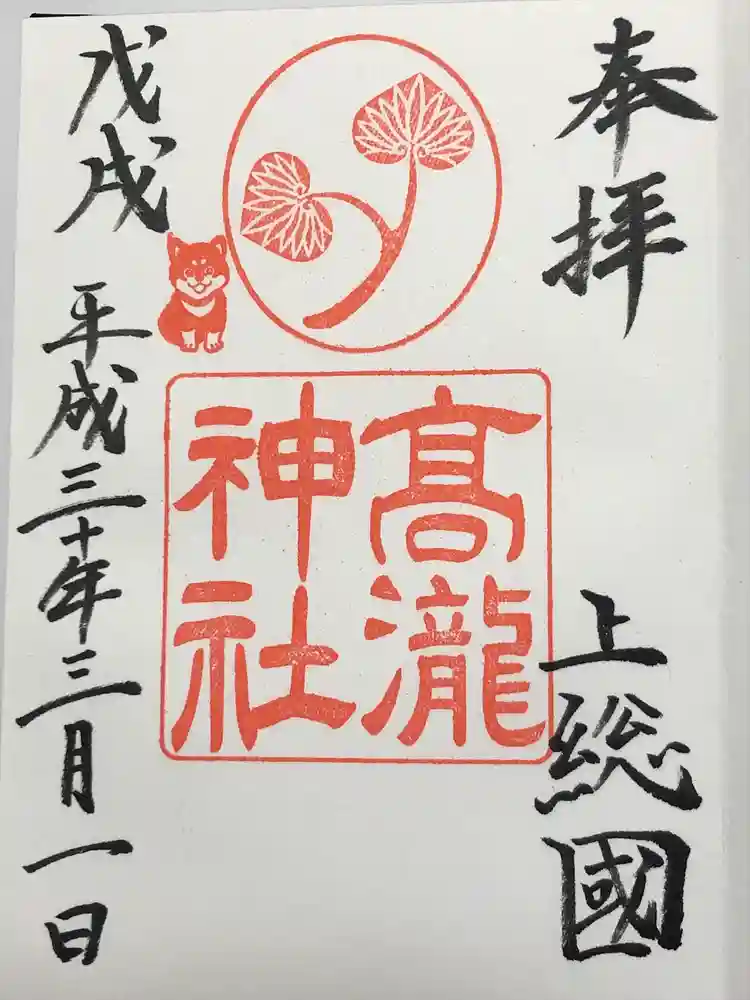 奉拝
上総國
髙瀧
神社
戊戌
平成三十年三月一日